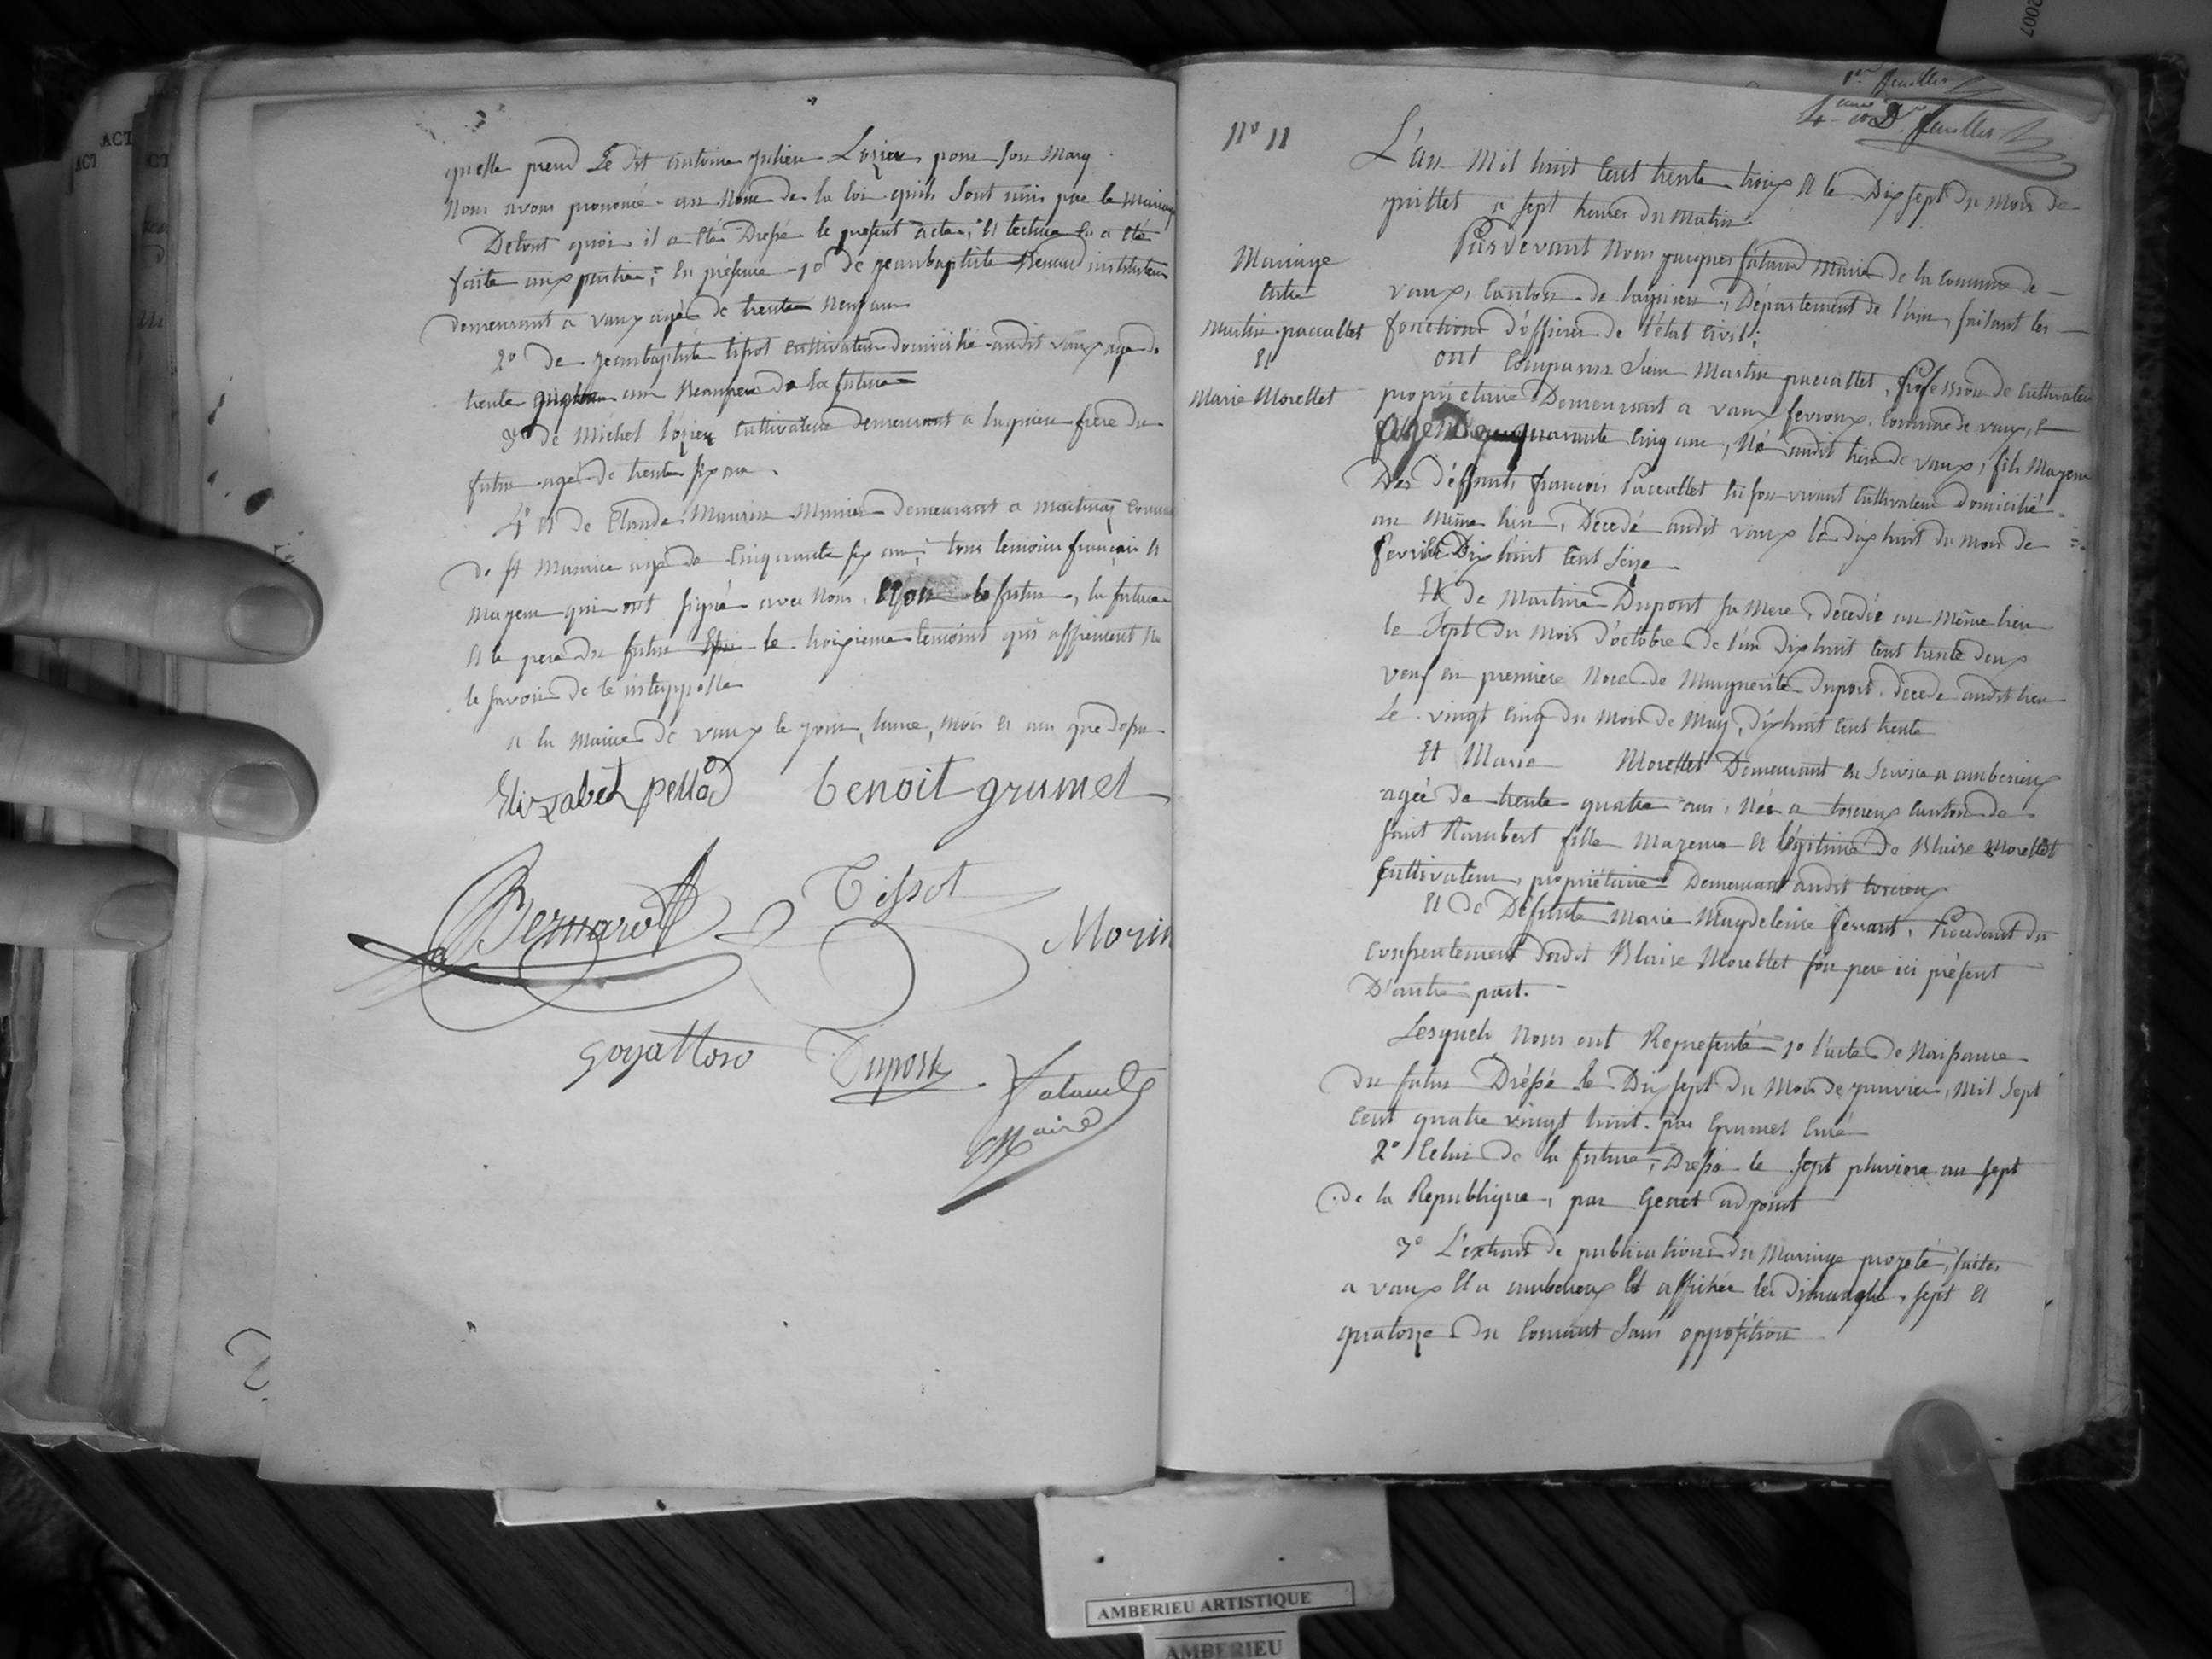 quelle prend Le dit antoine julien Lozier pour son Mary.
Nous avons prononcé au Nom de la loi quils sont unis par le Mariage
Detout quoi il a été Dressé le present acte, et lecture en a été
faite aux parties, en présence 1º de jeanbaptiste Benard instituteur
demeurant a vaux agé de trente neuf ans
2º de jeanbaptiste tissot cultivateur domicilié audit vaux age de
trente ans Beaupere de la future
3º de Michel lozier cultivateur demeurant a lagnieu frère du
futur agé de trente six ans.
4º et de Claude Maurin Munier demeurant a martinaz
de st Maurice agé de cinquante six ans; tous temoins français et
Mageur qui ont signé avec nous, Non le futur, la future
et le pere du futur le troisieme temoins qui affirment Ne
le savoir de ce interppellé
a la Mairie de vaux le jour, heure, mois et an que dessus
Elizabeth pellod benoit grumet
Bernard Tissot
Morin
goyatton Dupont
Falaud
Maire
1er feuillet
4eme et Dr feuillet
Nº 11
L'an Mil huit Cent trente trois et le Dix sept du Mois de
juillet a sept heures du Matin
Pardevant Nous jacques falaud Maire de la commune de
vaux, Canton de lagnieu, Département de l'ain, faisant les
fonctions d'officier de l'état civil;
Mariage
Entre
Martin paccallet
Et
Marie Morellet
ont Comparus Sieur Martin paccallet, Profession de cultivateur
propriétaire Demeurant a vaux fevroux, Commune de vaux,
agé De quarante cinq ans, Né audit lieu de vaux, fils Mageur
Des déffunts françois Paccallet en son vivant Cultivateur domicilié
au Même lieu, Décedé audit vaux le dix huit du mois de
fevrier Dix huit Cent Seize
Et de Martine Dupont sa Mere, décedée au Même lieu
le Sept du Mois d'octobre de l'an dix huit cent trente deux
veuf en premiere Noce de Marguerite Dupont, décedé audit lieu
Le vingt cinq du Mois de May, dix huit cent trente
Et Marie Morellet Demeurant en service a amberieux
agée de trente quatre ans, Née a torcieux canton de
saint Rambert fille Mageure et légitime de Blaise Morellet
Cultivateur, propriétaire Demeurant audit torcieux
Et de Défunte Marie Magdeleine ferrant, Procedant du
consentement dudit Blaise Morellet son pere ici présent
D'autre part.
Lesquels Nous ont Representé 1º l'acte de Naissance
du futur Dréssé le Dix sept du Mois de janvier, Mil Sept
Cent quatre vingt huit. par Grumet Curé
2º Celui de la future, Dressé le sept pluviose an sept
de la Republique, par Genet adjoint
3º L'extrait de publications du Mariage projeté, faites
a vaux et a amberieux et affichée les dimanche, sept et
quatorze du Courant Sans oppossition
AMBERIEU ARTISTIQUE
AMBERIEU
2007
ACT
ACT